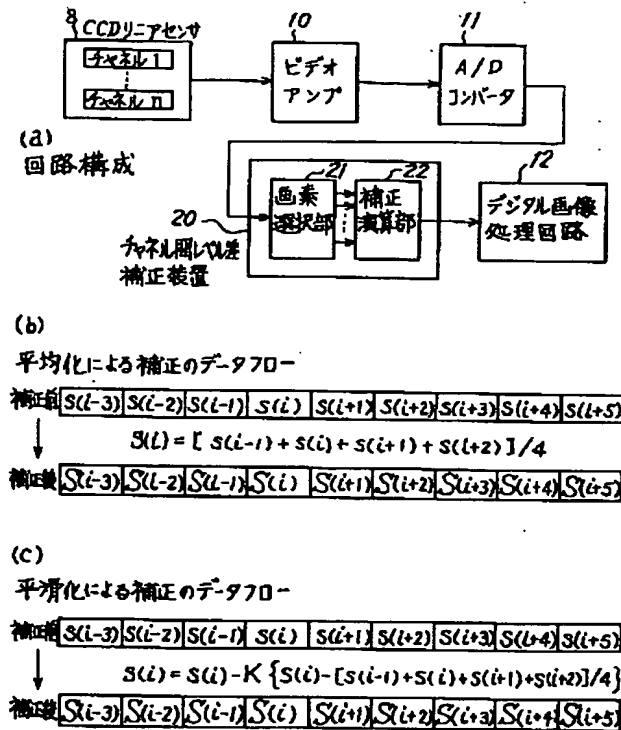 8 CCDリニアセンサ
チャネル1
チャネル n
10
ビデオ
アンプ
11
A/D
コンバータ
(a)
回路構成
20
チャネル間レベル差
補正装置
21
画素
選択部
22
補正
演算部
12
デジタル画像
処理回路
(b)
平均化による補正のデータフロー
補正前 S(i-3) S(i-2) S(i-1) S(i) S(i+1) S(i+2) S(i+3) S(i+4) S(i+5)
S(i) = [ S(i-1) + S(i) + S(i+1) + S(i+2) ]/4
補正後 S(i-3) S(i-2) S(i-1) S(i) S(i+1) S(i+2) S(i+3) S(i+4) S(i+5)
(c)
平滑化による補正のデータフロー
補正前 S(i-3) S(i-2) S(i-1) S(i) S(i+1) S(i+2) S(i+3) S(i+4) S(i+5)
S(i) = S(i) - K {S(i) - [S(i-1) + S(i) + S(i+1) + S(i+2)]/4}
補正後 S(i-3) S(i-2) S(i-1) S(i) S(i+1) S(i+2) S(i+3) S(i+4) S(i+5)